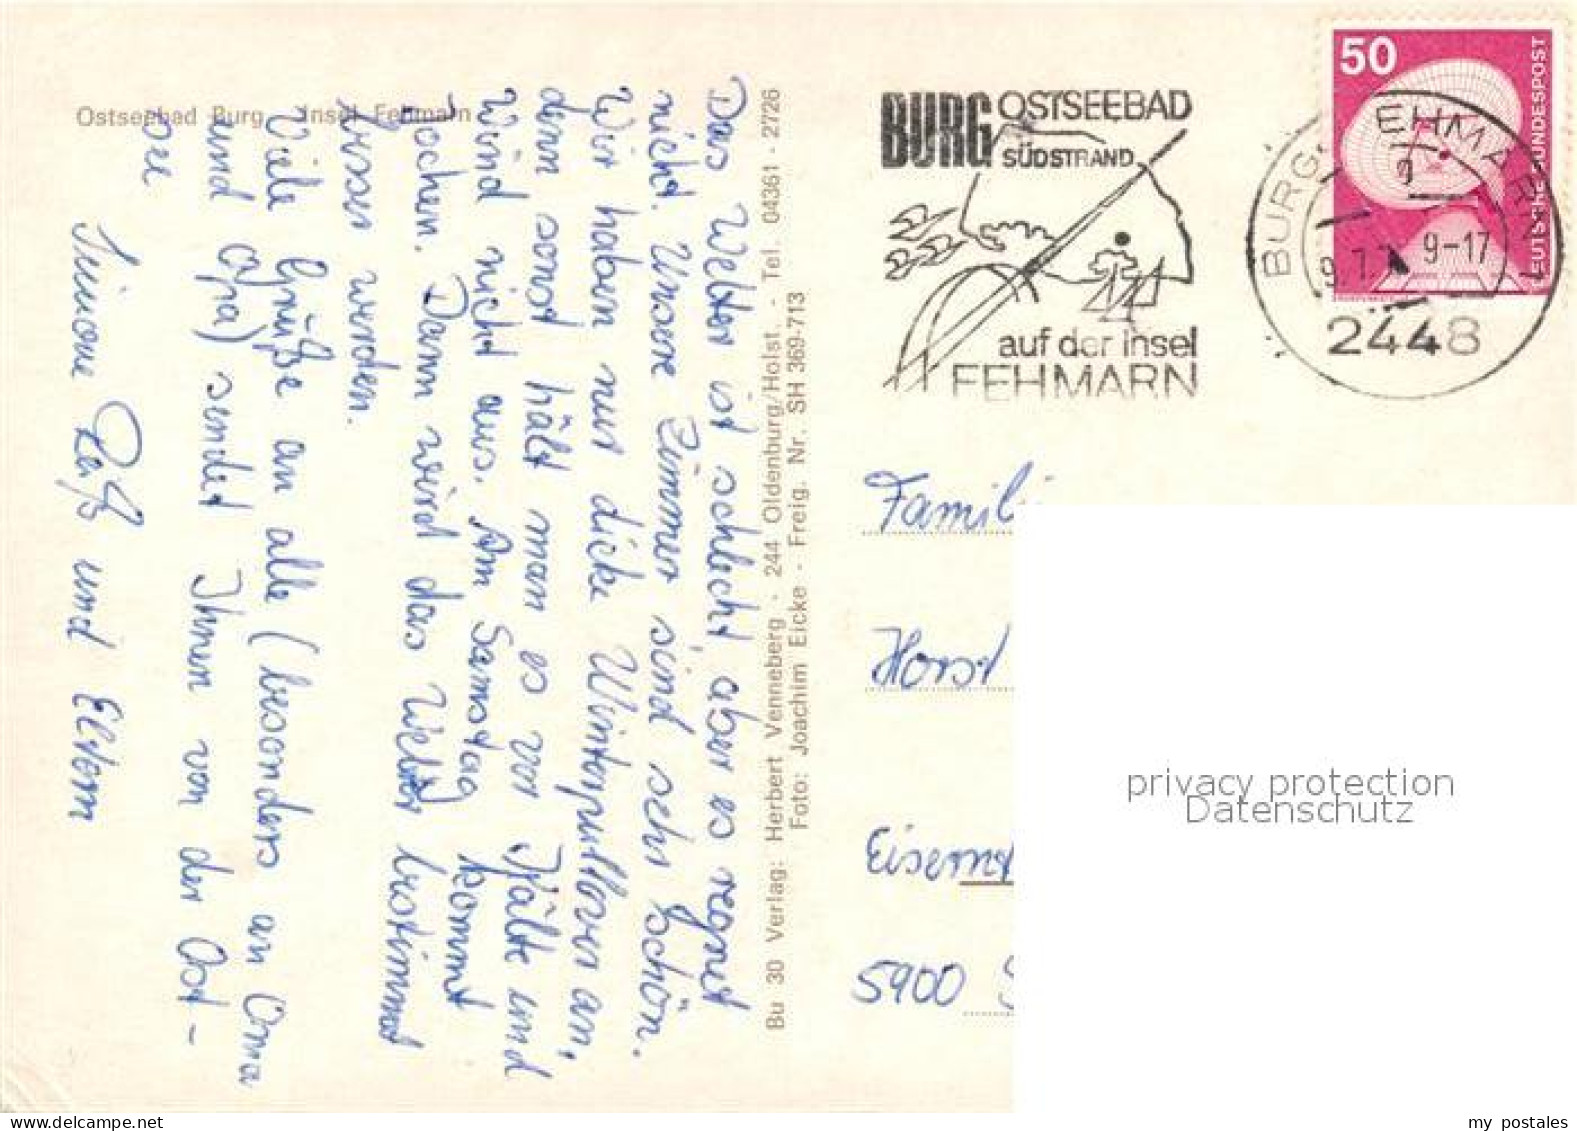 Ostseebad Burg Insel Fehmarn
Das Wetter ist schlecht, aber es regnet
nicht. Unsere Zimmer sind sehr schön.
Wir haben nur dicke Winterpullover an,
denn sonst hält man es vor Kälte und
Wind nicht aus. Am Samstag kommt
Jochem. Dann wird das Wetter bestimmt
besser werden.
Viele Grüße an alle (besonders an Oma
und Opa) sendet Ihnen von der Ost-
see
Simone und Eltern
Bu 30 Verlag: Herbert Venneberg - 244 Oldenburg/Holst. - Tel. 04361 - 2726
Foto: Joachim Eicke - Freig. Nr. SH 369-713
BURG OSTSEEBAD
SÜDSTRAND
auf der Insel
FEHMARN
50
DEUTSCHE BUNDESPOST
BURG FEHMARN 1
9
9-17
2448
Famili
Horst
5900
privacy protection
Datenschutz
my postales